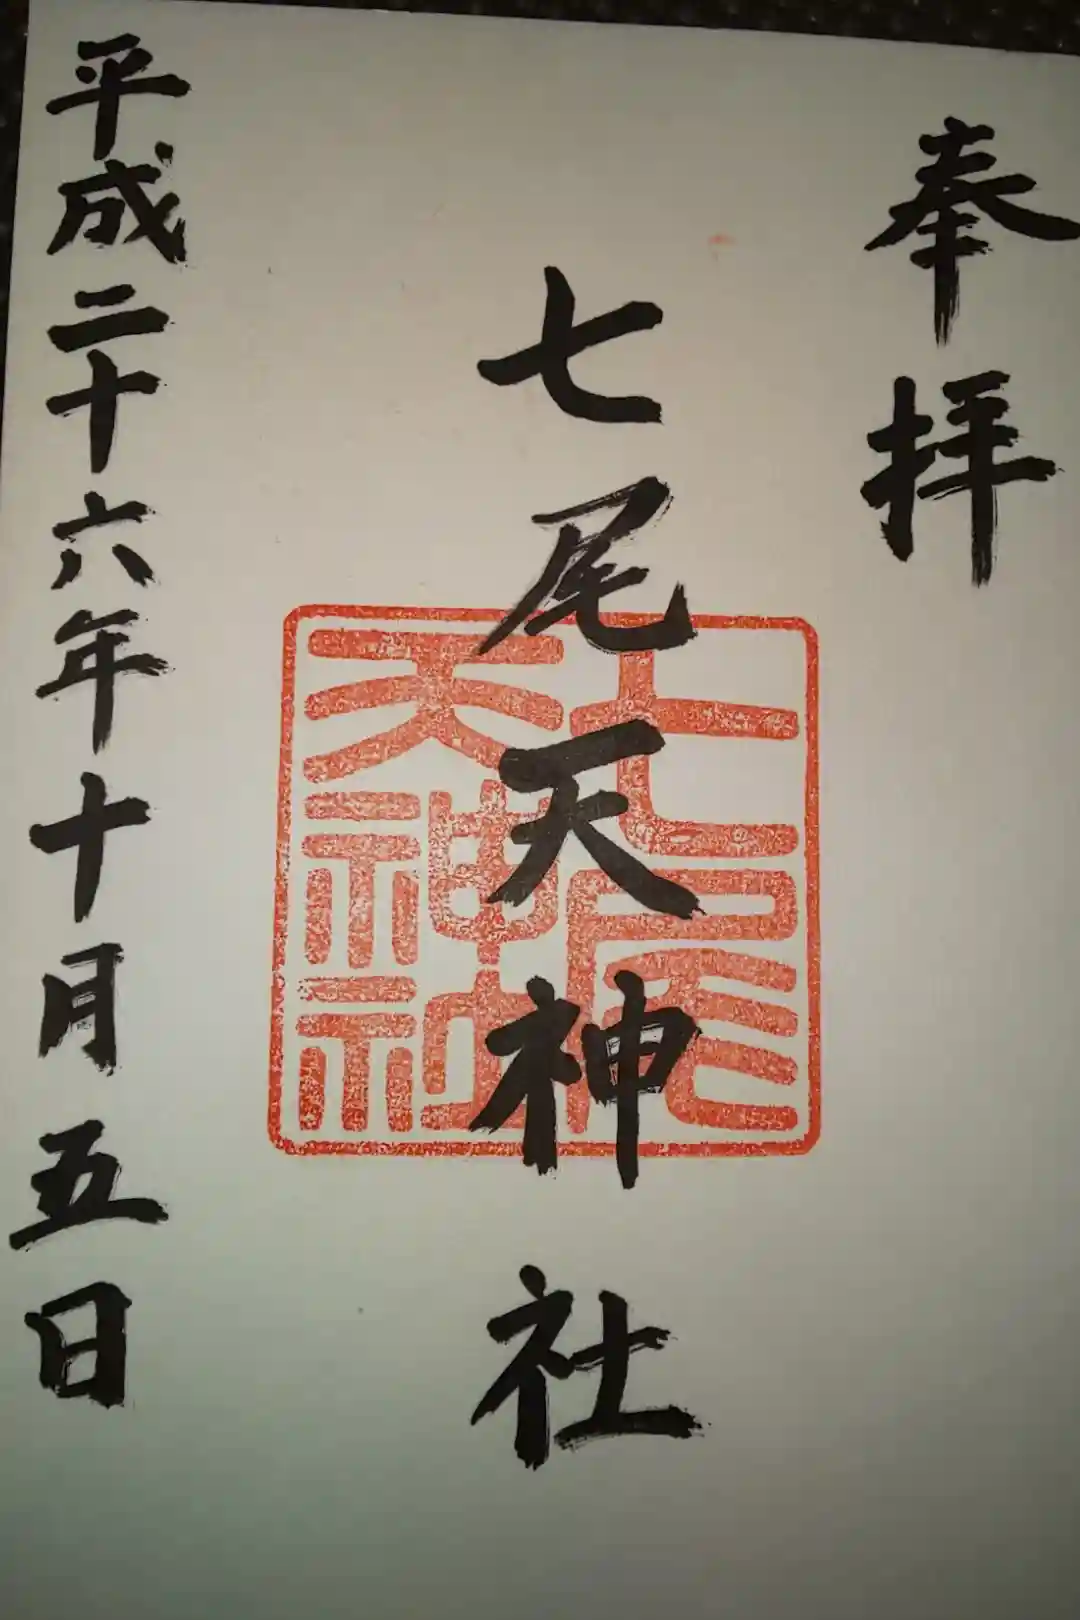 奉拝
七尾天神社
七尾
天神社
平成二十六年十月五日